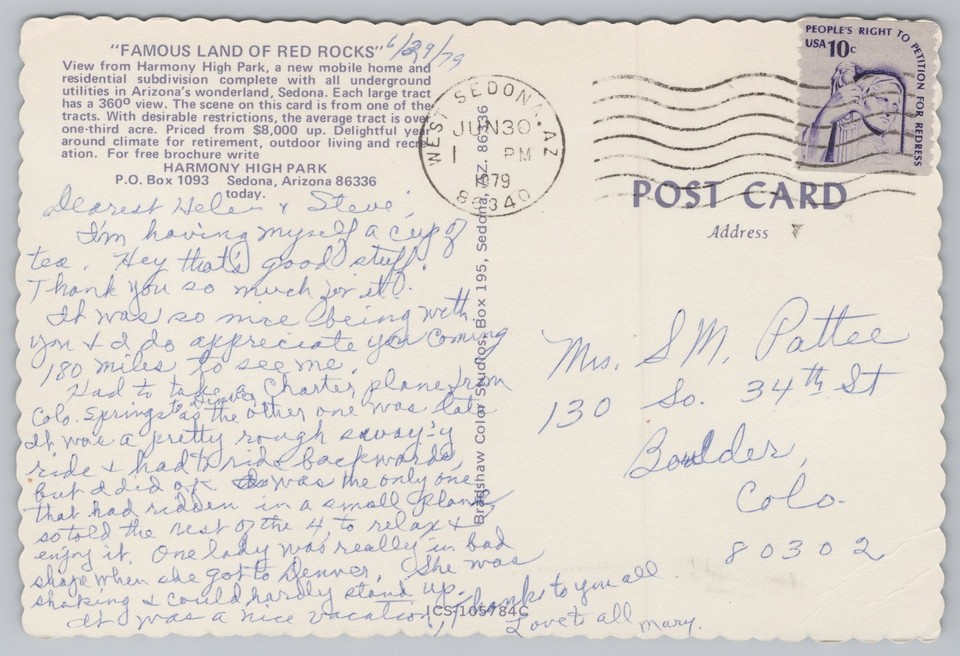 "FAMOUS LAND OF RED ROCKS" 6/29/79
View from Harmony High Park, a new mobile home and
residential subdivision complete with all underground
utilities in Arizona's wonderland, Sedona. Each large tract
has a 360º view. The scene on this card is from one of the
tracts. With desirable restrictions, the average tract is over
one-third acre. Priced from $8,000 up. Delightful year
around climate for retirement, outdoor living and recre-
ation. For free brochure write
HARMONY HIGH PARK
P.O. Box 1093 Sedona, Arizona 86336
today.
Dearest Helen & Steve,
I'm having myself a cup of
tea. Hey that's good stuff.
Thank you so much for it!.
It was so nice being with
you & I do appreciate you coming
180 miles to see me.
Had to take a Charter plane from
Colo. Springs to Denver as the other one was late
It was a pretty rough sway-y
ride & had to ride backwards,
but I did O.K. was the only one
that had ridden in a small plane
so told the rest of the 4, to relax &
enjoy it. One lady was really in bad
shape when she got to Denver. She was
shaking & could hardly stand up.
It was a nice vacation, Thanks to you all
Love to all Mary.
ICS-105784C
Bradshaw Color Studios, Box 195, Sedona, AZ. 86336
WEST SEDONA, AZ
JUN 30
PM
1979
86340
PEOPLE'S RIGHT TO PETITION FOR REDRESS
USA 10c
POST CARD
Address
Mrs. S M. Pattee
130 So. 34th St
Boulder,
Colo.
80302